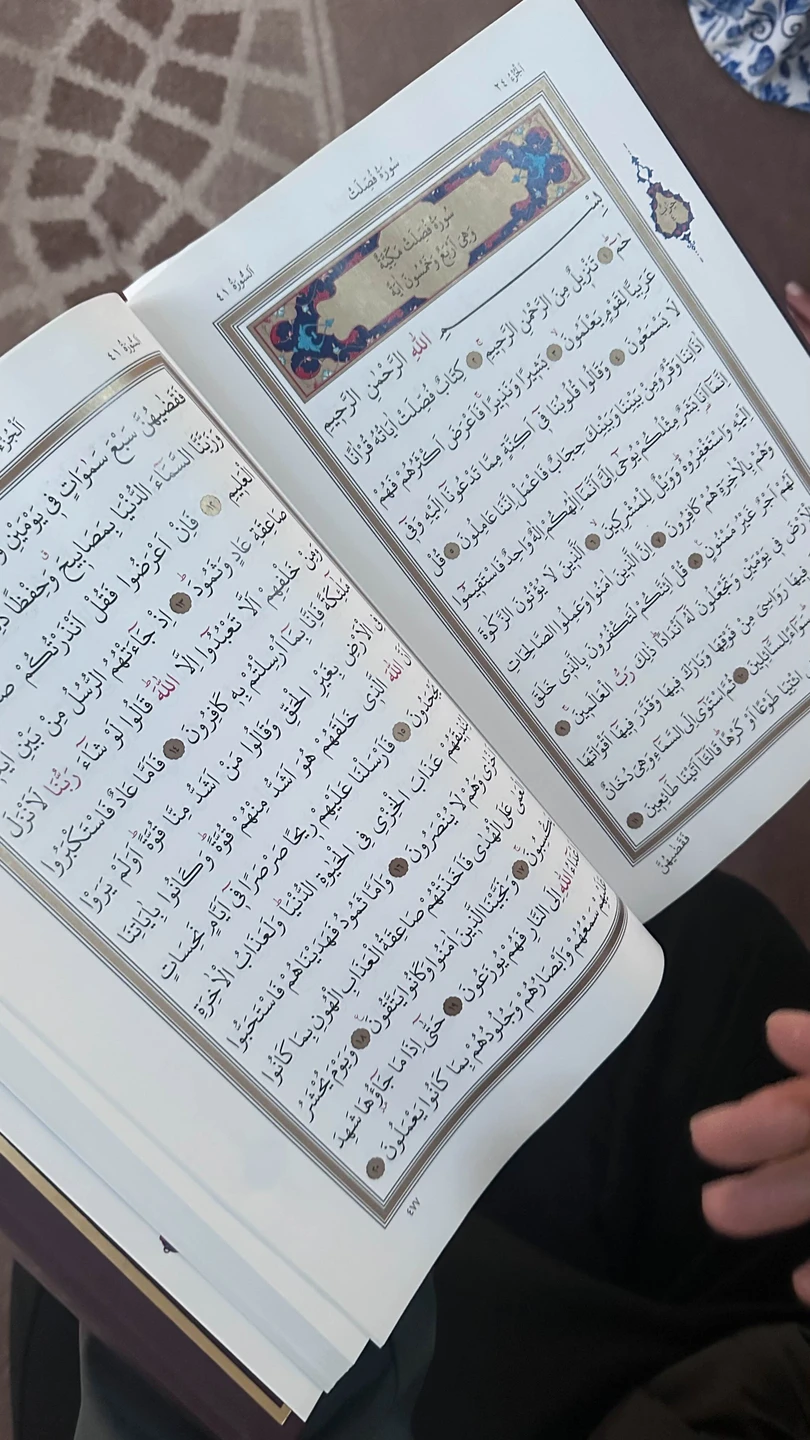 الجزء ٢٤
سورة فصلت
السورة ٤١
حزب
سُورَةُ فُصِّلَتْ مَكِّيَّةٌ
وَهِىَ اَرْبَعٌ وَخَمْسُونَ اٰيَةً
بِسْمِ اللّٰهِ الرَّحْمٰنِ الرَّحِيمِ
حٰمٓ ١ تَنْزِيلٌ مِنَ الرَّحْمٰنِ الرَّحِيمِ ٢ كِتَابٌ فُصِّلَتْ اٰيَاتُهُ قُرْاٰنًا
عَرَبِيًّا لِقَوْمٍ يَعْلَمُونَ ٣ بَشِيرًا وَنَذِيرًا فَاَعْرَضَ اَكْثَرُهُمْ فَهُمْ
لَا يَسْمَعُونَ ٤ وَقَالُوا قُلُوبُنَا فِى اَكِنَّةٍ مِمَّا تَدْعُونَا اِلَيْهِ وَفِى
اٰذَانِنَا وَقْرٌ وَمِنْ بَيْنِنَا وَبَيْنِكَ حِجَابٌ فَاعْمَلْ اِنَّنَا عَامِلُونَ ٥ قُلْ
اِنَّمَا اَنَا بَشَرٌ مِثْلُكُمْ يُوحٰى اِلَىَّ اَنَّمَا اِلٰهُكُمْ اِلٰهٌ وَاحِدٌ فَاسْتَقِيمُوا
اِلَيْهِ وَاسْتَغْفِرُوهُ وَوَيْلٌ لِلْمُشْرِكِينَ ٦ اَلَّذِينَ لَا يُؤْتُونَ الزَّكٰوةَ
وَهُمْ بِالْاٰخِرَةِ هُمْ كَافِرُونَ ٧ اِنَّ الَّذِينَ اٰمَنُوا وَعَمِلُوا الصَّالِحَاتِ
لَهُمْ اَجْرٌ غَيْرُ مَمْنُونٍ ٨ قُلْ اَئِنَّكُمْ لَتَكْفُرُونَ بِالَّذِى خَلَقَ
فِى يَوْمَيْنِ وَتَجْعَلُونَ لَهُ اَنْدَادًا ذٰلِكَ رَبُّ الْعَالَمِينَ ٩
فِيهَا رَوَاسِىَ مِنْ فَوْقِهَا وَبَارَكَ فِيهَا وَقَدَّرَ فِيهَا اَقْوَاتَهَا
سَوَاءً لِلسَّائِلِينَ ١٠ ثُمَّ اسْتَوٰى اِلَى السَّمَاءِ وَهِىَ دُخَانٌ
ائْتِيَا طَوْعًا اَوْ كَرْهًا قَالَتَا اَتَيْنَا طَائِعِينَ ١١
فَقَضٰيهُنَّ
السورة ٤١
فَقَضٰيهُنَّ سَبْعَ سَمٰوَاتٍ فِى يَوْمَيْنِ
وَزَيَّنَّا السَّمَاءَ الدُّنْيَا بِمَصَابِيحَ وَحِفْظًا
الْعَلِيمِ ١٢ فَاِنْ اَعْرَضُوا فَقُلْ اَنْذَرْتُكُمْ
صَاعِقَةِ عَادٍ وَثَمُودَ ١٣ اِذْ جَاءَتْهُمُ الرُّسُلُ مِنْ بَيْنِ
وَمِنْ خَلْفِهِمْ اَلَّا تَعْبُدُوا اِلَّا اللّٰهَ قَالُوا لَوْ شَاءَ رَبُّنَا لَاَنْزَلَ
مَلٰئِكَةً فَاِنَّا بِمَا اُرْسِلْتُمْ بِهِ كَافِرُونَ ١٤ فَاَمَّا عَادٌ فَاسْتَكْبَرُوا
فِى الْاَرْضِ بِغَيْرِ الْحَقِّ وَقَالُوا مَنْ اَشَدُّ مِنَّا قُوَّةً اَوَلَمْ يَرَوْا
اَنَّ اللّٰهَ الَّذِى خَلَقَهُمْ هُوَ اَشَدُّ مِنْهُمْ قُوَّةً وَكَانُوا بِاٰيَاتِنَا
يَجْحَدُونَ ١٥ فَاَرْسَلْنَا عَلَيْهِمْ رِيحًا صَرْصَرًا فِى اَيَّامٍ نَحِسَاتٍ
لِنُذِيقَهُمْ عَذَابَ الْخِزْىِ فِى الْحَيٰوةِ الدُّنْيَا وَلَعَذَابُ الْاٰخِرَةِ
اَخْزٰى وَهُمْ لَا يُنْصَرُونَ ١٦ وَاَمَّا ثَمُودُ فَهَدَيْنَاهُمْ فَاسْتَحَبُّوا
الْعَمٰى عَلَى الْهُدٰى فَاَخَذَتْهُمْ صَاعِقَةُ الْعَذَابِ الْهُونِ بِمَا كَانُوا
يَكْسِبُونَ ١٧ وَنَجَّيْنَا الَّذِينَ اٰمَنُوا وَكَانُوا يَتَّقُونَ ١٨ وَيَوْمَ يُحْشَرُ
اَعْدَاءُ اللّٰهِ اِلَى النَّارِ فَهُمْ يُوزَعُونَ ١٩ حَتّٰى اِذَا مَا جَاؤُهَا شَهِدَ
عَلَيْهِمْ سَمْعُهُمْ وَاَبْصَارُهُمْ وَجُلُودُهُمْ بِمَا كَانُوا يَعْمَلُونَ ٢٠
٤٧٧